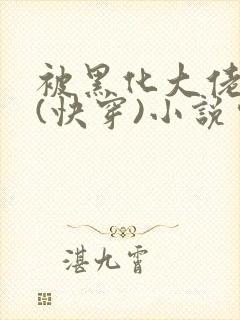 被黑化大佬
(快穿)小说
湛九霄